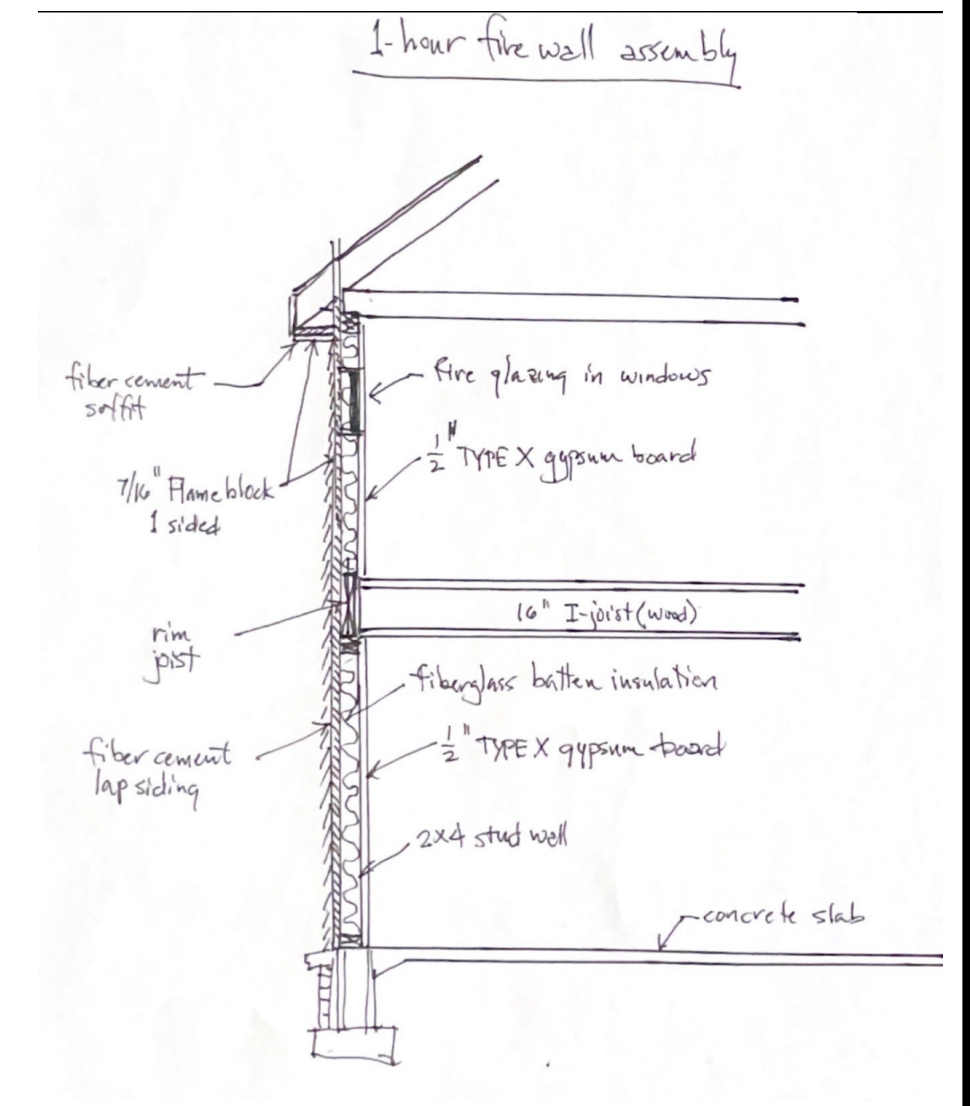 1-hour fire wall assembly
fiber cement
soffit
fire glazing in windows
1/2" TYPE X gypsum board
7/16" Flameblock
1 sided
16" I-joist (wood)
rim
joist
fiberglass batten insulation
1/2" TYPE X gypsum board
fiber cement
lap siding
2x4 stud wall
concrete slab